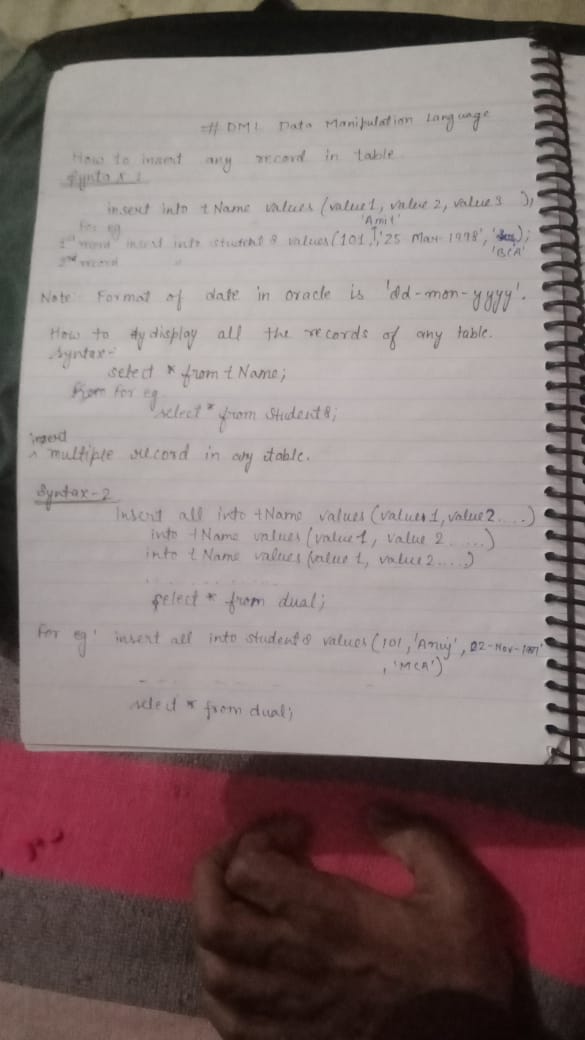 # DML Data Manipulation Language
How to insert any record in table
Syntax 1
insert into tName values (value1, value 2, value 3 );
For eg
'Amit'
1st record insert into student8 values (101, '25 Mar 1998', );
'BCA'
2nd record "
Note: Format of date in oracle is 'dd-mon-yyyy'.
How to display all the records of any table.
Syntax-
select * from tName;
for eg
select * from Student8;
insert
^ multiple record in any table.
Syntax-2
Insert all into tName values (value1, value2.....)
into tName values (value1, value 2 ......)
into tName values (value 1, value2....)
select * from dual;
For eg: insert all into student8 values (101, 'Anuj', 02-Nov-1997'
, 'MCA')
select * from dual;